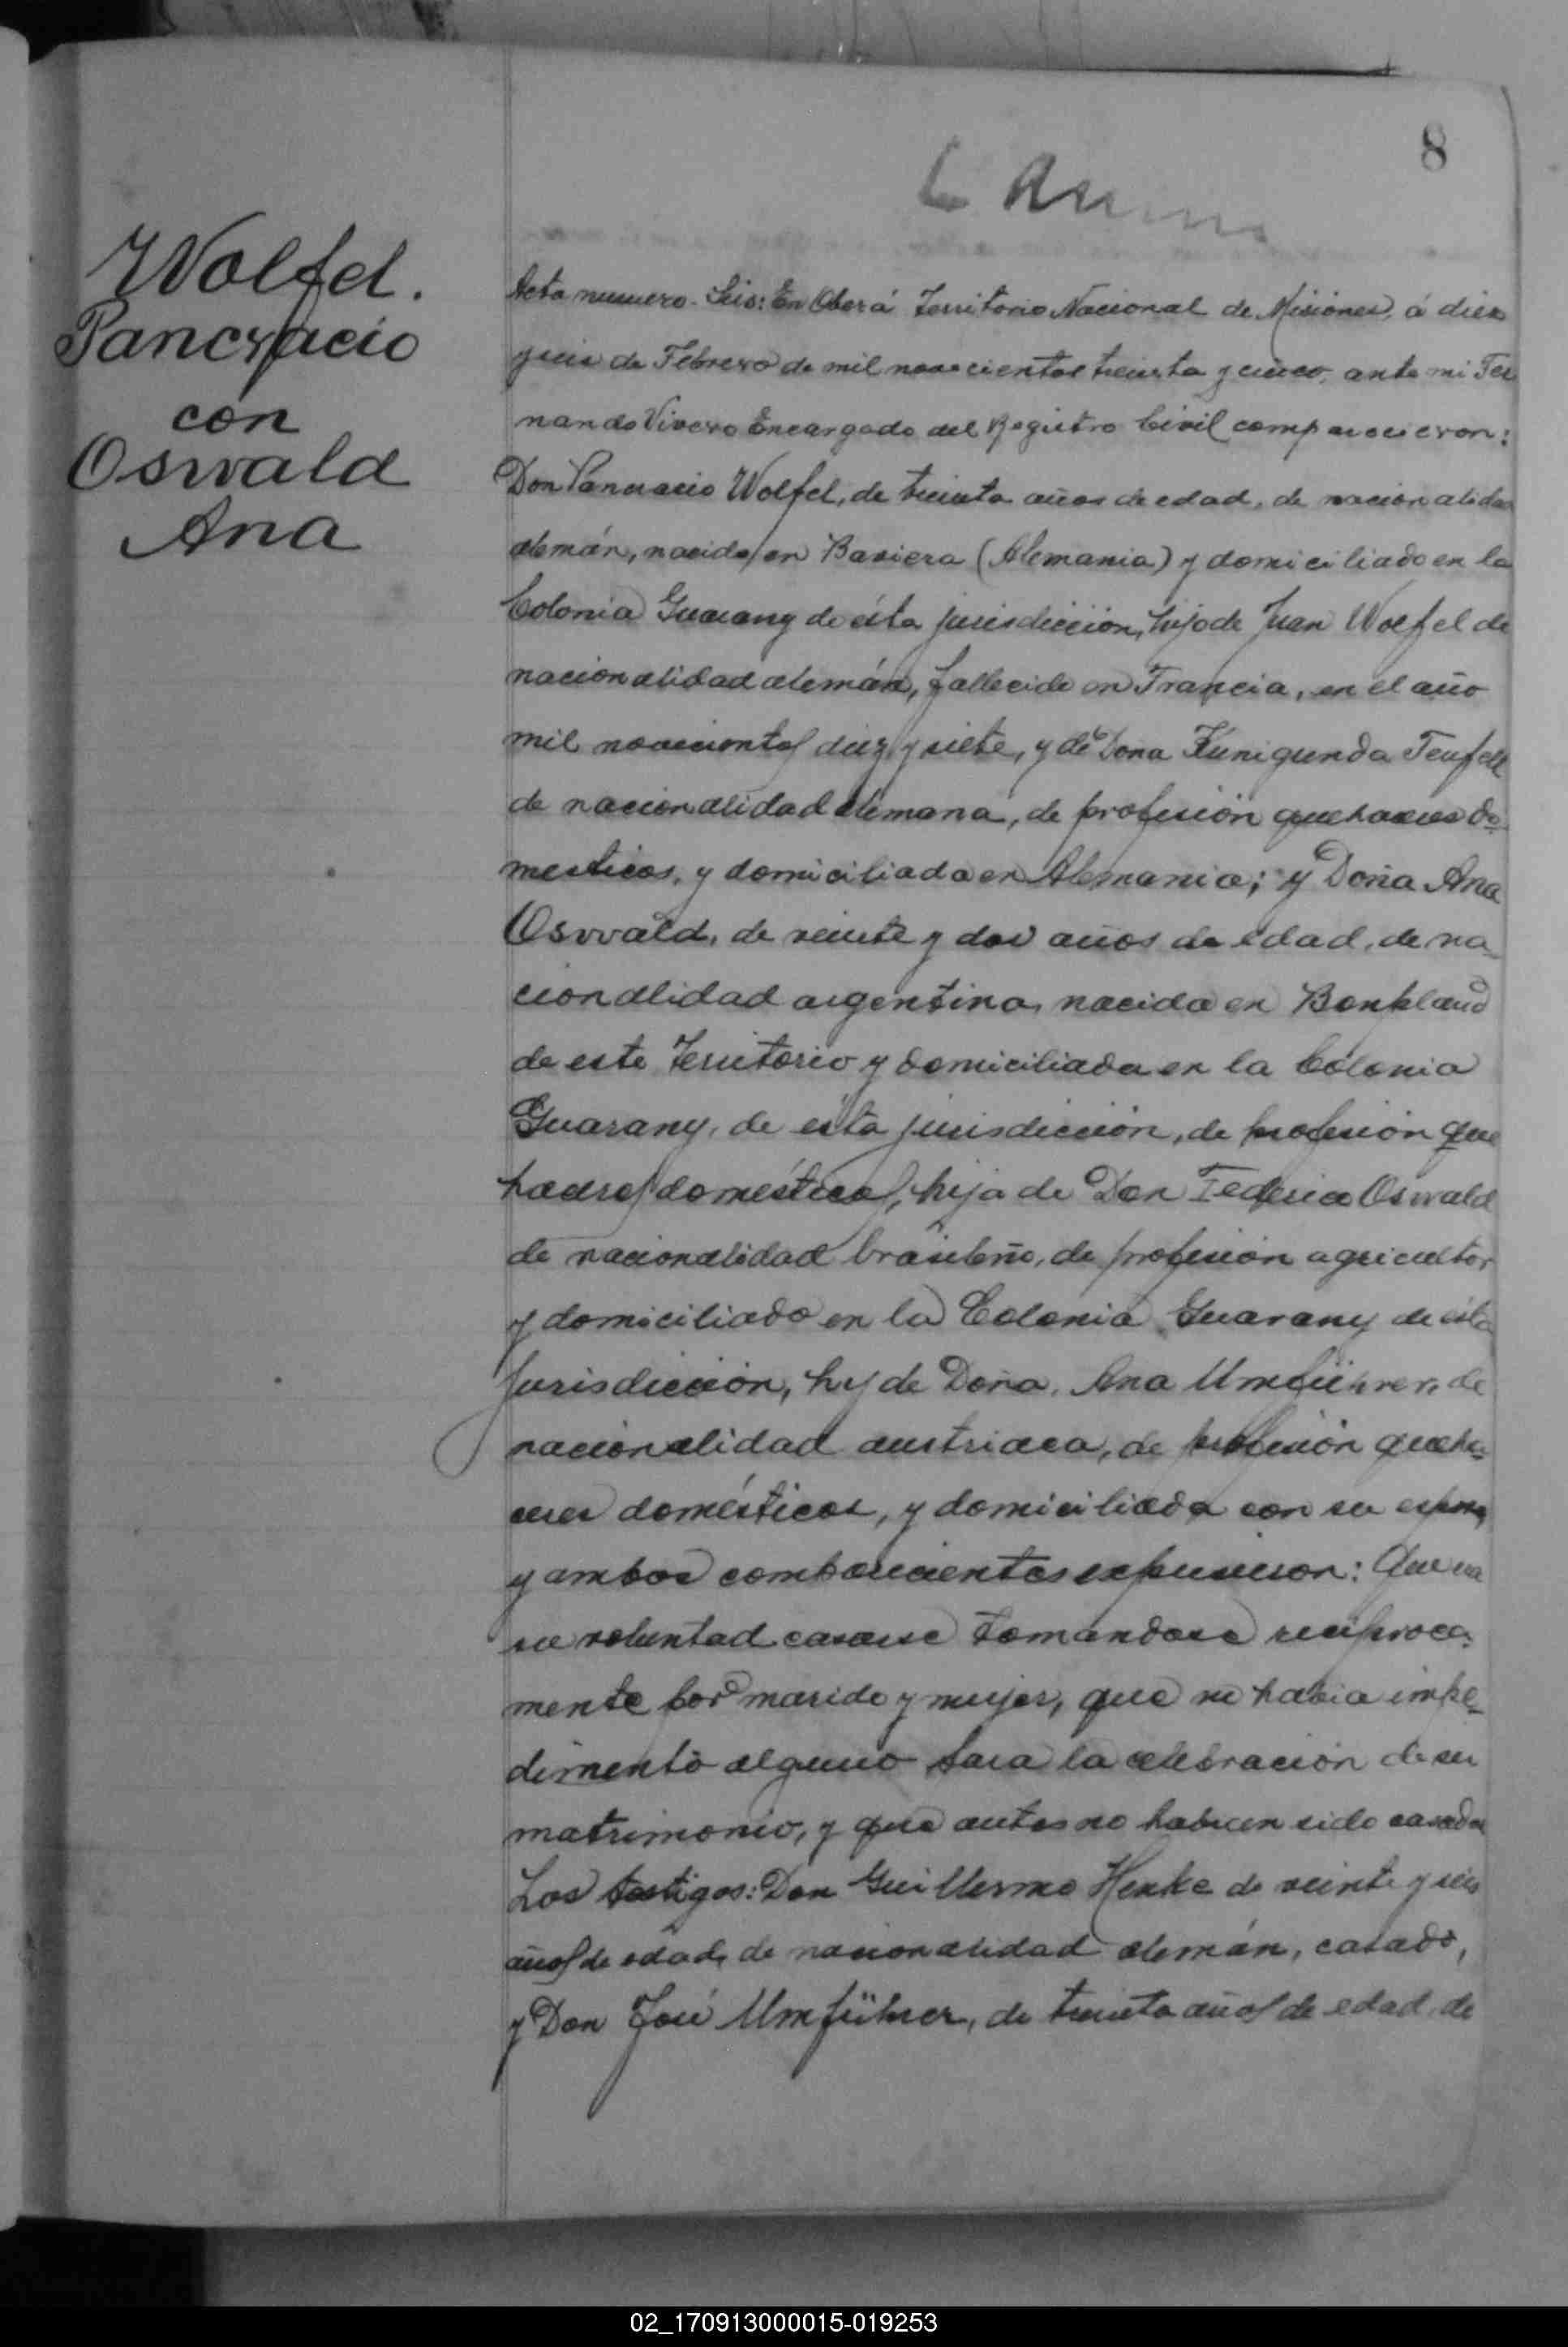 8
Wolfel.
Pancracio
con
Oswald
Ana
Acta numero Seis: En Oberá Territorio Nacional de Misiones, á diez
y seis de Febrero de mil novecientos treinta y cinco, ante mi Fer
nando Vivero Encargado del Registro Civil comparecieron:
Don Pancracio Wolfel, de treinta años de edad, de nacionalidad
alemán, nacido en Baviera (Alemania) y domiciliado en la
Colonia Guarany de ésta jurisdicción, hijo de Juan Woefel de
nacionalidad alemán, fallecido en Francia, en el año
mil novecientos diez y siete, y de Dona Kunigunda Teufell
de nacionalidad alemana, de profesión quehaceres do-
mesticos, y domiciliada en Alemania; y Doña Ana
Oswald, de veinte y dos años de edad, de na-
cionalidad argentina, nacida en Bonpland
de este Territorio y domiciliada en la Colonia
Guarany, de ésta jurisdicción, de profesión que
haceres domésticos, hija de Don Federico Oswald
de nacionalidad brasileño, de profesión agricultor
y domiciliado en la Colonia Guarany de ésta
Jurisdicción, y de Doña Ana Umführer, de
nacionalidad austriaca, de profesión queha-
ceres domésticos, y domiciliada con su esposo,
y ambos comparecientes expusieron: Que era
su voluntad casarse tomandose reciproca-
mente por marido y mujer, que no habia impe-
dimento alguno para la celebración de su
matrimonio, y que antes no habian sido casados
Los testigos: Don Guillermo Henke de veinte y seis
años de edad, de nacionalidad alemán, casado,
y Don José Umführer, de treinta años de edad, de
02_170913000015-019253